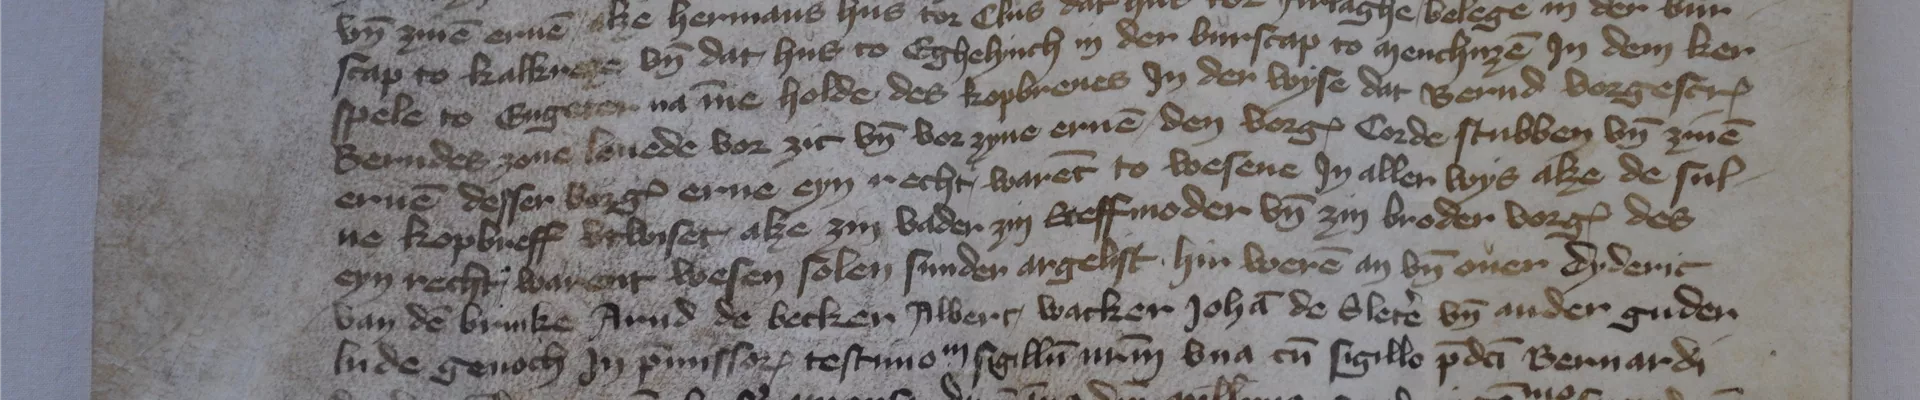 vn̄ zinē eruē alze hermans hus tor Clus dat hus tor belege in der bur
scap to kalkreze vn̄ dat hus to Eghehinch in der burscap to In dem ker
spele to Engeter na holde des kopbreues In der wyse dat Bernd vorgescr
Berndes zone louede vor zic vn̄ vor zyne eruē den vorg Corde stubben vn̄ zinē
eruē desser vorg erue eyn recht warēt to wesene In aller wys alze de sul
ue kopbreff vtwiset alze zin vader zin Steffmoder vn̄ zin broder vorg des
eyn recht warent wesen solen sunder argelist hir werē an vn̄ ouer Dyderic
van dē brinke Arnd de becker Albert wacker Johā de Sletē vn̄ ander guder
lude genoch In p̄missor testimo m sigillū nr̄m vna cū sigillo p̄dc̄i Bernardi